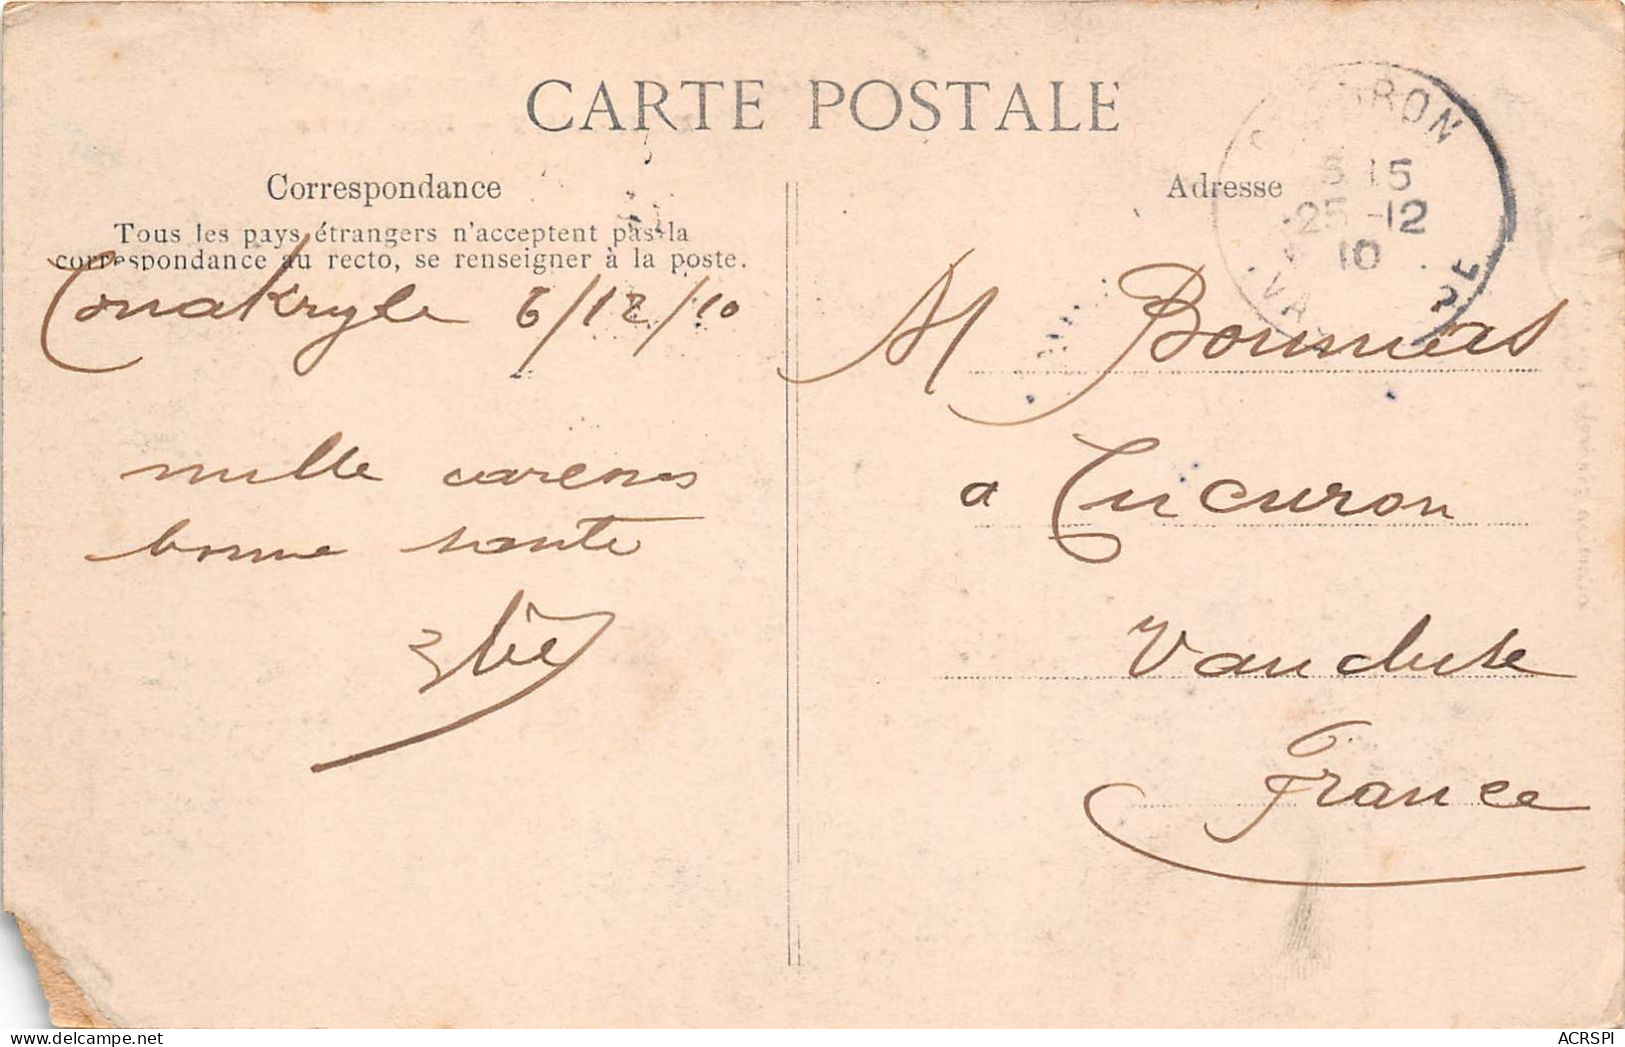 CARTE POSTALE
Correspondance
Tous les pays étrangers n'acceptent pas la
correspondance au recto, se renseigner à la poste.
Conakry le 6/12/10
mille caresses
bonne sante
Adresse
25 -12
10
M
a Cucuron
Vaucluse
France
ACRSPI